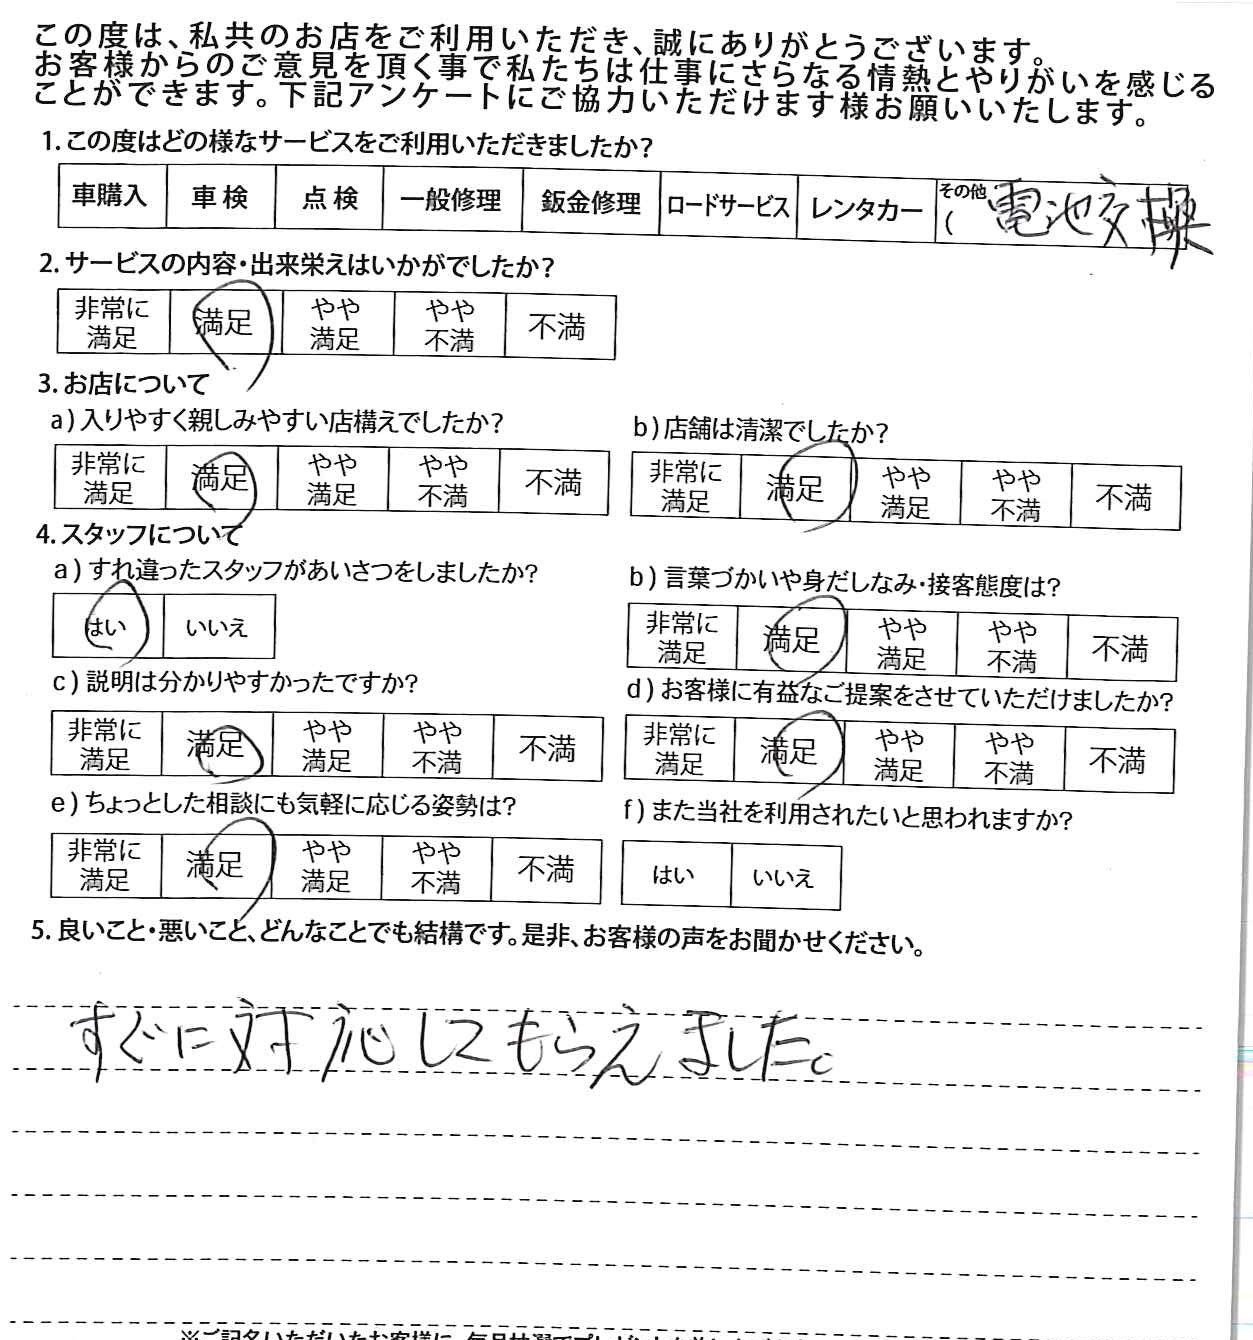 この度は、私共のお店をご利用いただき、誠にありがとうございます。
お客様からのご意見を頂く事で私たちは仕事にさらなる情熱とやりがいを感じる
ことができます。下記アンケートにご協力いただけます様お願いいたします。
1.この度はどの様なサービスをご利用いただきましたか?
車購入 車検 点検 一般修理 鈑金修理 ロードサービス レンタカー その他
( 電池交換
2.サービスの内容・出来栄えはいかがでしたか?
非常に満足 満足 やや満足 やや不満 不満
3.お店について
a)入りやすく親しみやすい店構えでしたか?
非常に満足 満足 やや満足 やや不満 不満
b)店舗は清潔でしたか?
非常に満足 満足 やや満足 やや不満 不満
4.スタッフについて
a)すれ違ったスタッフがあいさつをしましたか?
はい いいえ
b)言葉づかいや身だしなみ・接客態度は?
非常に満足 満足 やや満足 やや不満 不満
c)説明は分かりやすかったですか?
非常に満足 満足 やや満足 やや不満 不満
d)お客様に有益なご提案をさせていただけましたか?
非常に満足 満足 やや満足 やや不満 不満
e)ちょっとした相談にも気軽に応じる姿勢は?
非常に満足 満足 やや満足 やや不満 不満
f)また当社を利用されたいと思われますか?
はい いいえ
5.良いこと・悪いこと、どんなことでも結構です。是非、お客様の声をお聞かせください。
すぐに対応してもらえました。
※ご記名いただいたお客様に、毎月抽選でプレゼント